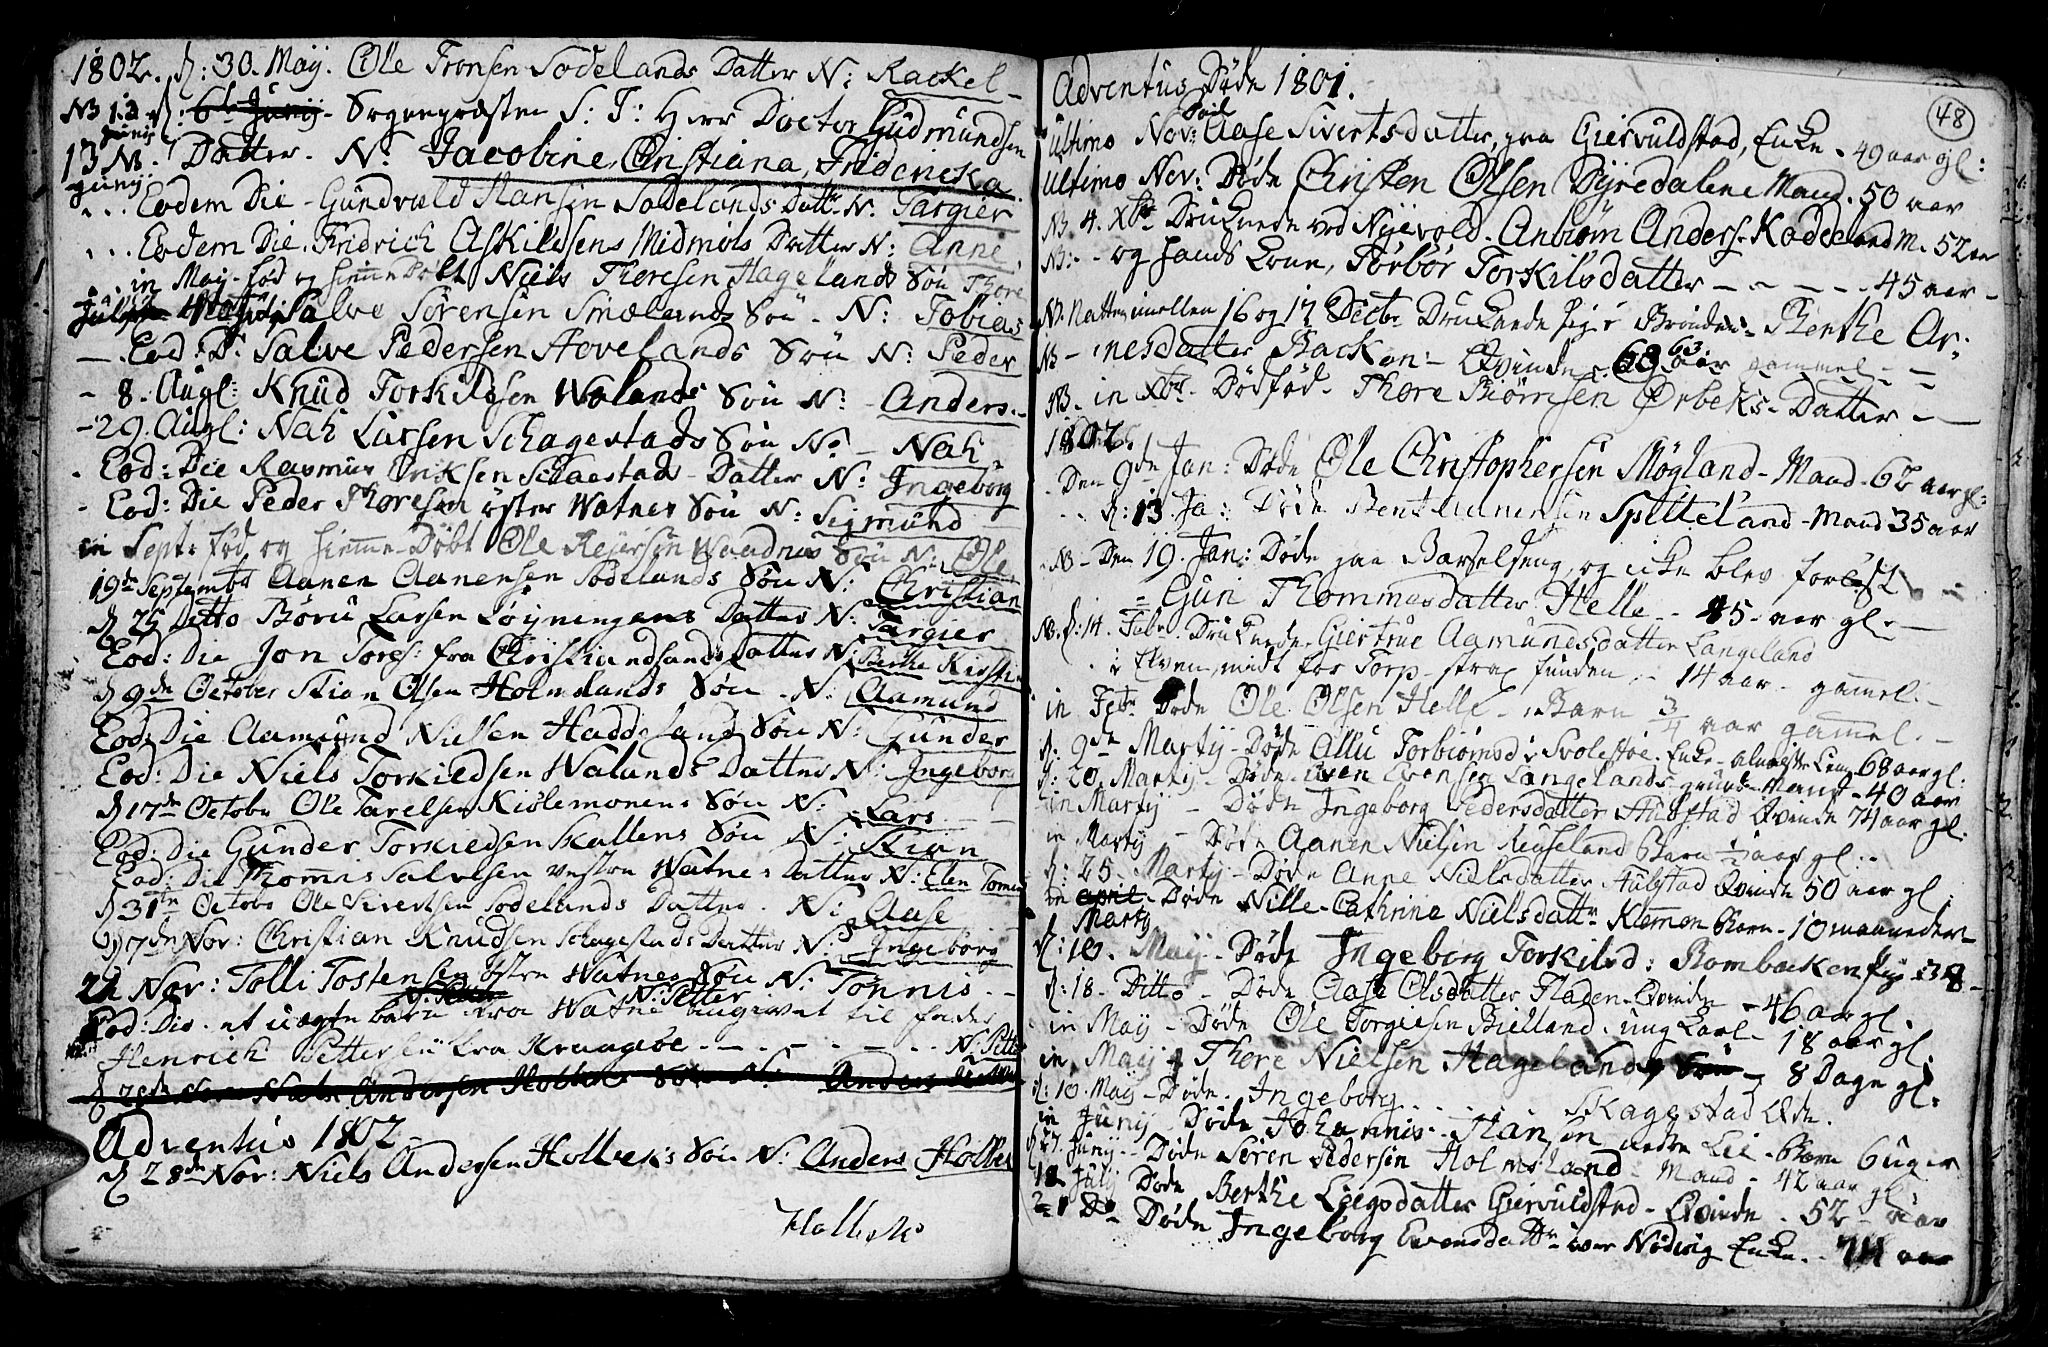 1802. d: 30. Maij. Ole Tronsen Sodelands Datter N: Rackel
NB 13 Junij d: 6te Junij - Sogneprästen S: T: Herr Doctor Gudmundsen
13 NB. Junij. Datter. N: Jacobine, Cristiana, Fridericka
Eodem Die - Gundvald Hansen Sodelands Dattr N: Targier
Eodem Die. Fridrich Askildsens Midmois Datter N: Anne
in Maij - fød og hiemedøbt Niels Thoresen Hagelands Søn Thore
Salve Sörensen Smælands Søn - N: Tobias
Eod: D: Salve Pedersen Hovelands Søn N: Peder
8. Augl: Knud Torkildsen Wolands Søn N: Anders
29. Augl: Nah Larsen Schagestads Søn N: Nah
Eod: Die Rasmus Eriksen Schagestads - Datter N: Ingeborg
Eod: Die Peder Thoresen öster Watnes Søn N: Sigmund
in Sept: fød og hieme-Døbt Ole Reiersen Søn N: Ole
19de Septembr Aanen Aanensen Sodelands Søn N: Christian
d 25 Ditto Börü Larsen Löyningens Datter N: Targier
Eod: Die Jon Tores: fra Christiandsands Datter N: Kirsti
d 9de October Stian Olsen Holmelands Søn - N: Aamund
Eod: Die Aamund Nielsen Haddeland Søn N: Gunder
Eod: Die Niels Torkildsen Walands Datter N: Ingeborg
d 17de Octobr Ole Tarelsen Kiölemonens Søn N: Lars
Eod: Die Gunder Torkieldsen Skallens Søn N: Stian
Eod: Die Thommis Salvesen vestre Watnes Datter N: Elen Tomine
d 31te Octobr Ole Sivertsen Sodelands Datter. N: Aase
d 7de Nor: Christian Knudsen Schagestads Datter N: Ingeborg
21 Nor: Tolli Tostensen östre Watnes Søn N: Tönnis
Eod: Die et uægte barn fra Watne N: Petter angivet til fader
Henrich Pettersen fra Kraagöe - - - - N: Petter
d 28de Nor Niels Andersen Holbeks Søn N: Anders
Adventus 1802
d 28de Nor: Niels Andersen Holbeks Søn N: Anders Holbek
Holbeks
48
Adventus Døde 1801.
Ultimo Nov: Død Aase Sivertsdatter, paa Giervuldstad, Enke - 49 aar gl:
Ultimo Nov: Døde Christen Olsen Dyredalene Mand. 50 aar
NB 4. Xbr Druknede ved Nyevold. Anbiörn Anders. Kaddeland M. 52 aar
NB: - og hands Kone, Torbör Torkilsdatter - - - - 45 aar -
NB. Natten imellem 16 og 17 Decbr Druknede sig i Brönden - Berthe Ar:
NB - nesdatter Backen - Qvinde. 63 aar gammel - -
NB. in Xbr. Dødfød. Thore Biörnsen Örbeks - Datter -
1802.
Den 9de Jan: Døde Ole Christophersen Mögland - Mand - 62 aar gl:
d: 13. Ja: Døde Bent Spitteland - Mand 35 aar
NB - Den 19. Jan: Døde paa Barselseng, og ikke blev forløst
Gun Thommesdatter Helle - 45 - aar gl: -
NB. d: 14. Febr. Druknede Giertrue Aamundsdatter Langeland
i Elven midt for Torp - strax funden - 14 aar - gammel. -
in Febr Døde Ole Olsen Helle - Barn 3/4 aar gammel. -
d: 9de Martij - Døde Allu Torbiörnsd: Svolestöe. Enke 68 aar gl:
d: 20. Martij - Døde Even Evensen Langelands Mand - 40 aar
in Martij - Døde Ingeborg Pedersdatter Hulstad Qvinde 74 aar gl:
in Martij - Døde Aanen Nielsen Reuseland Barn 1/2 aar gl:
d: 25. Martij - Døde Anne Nielsdatter Hulstad Qvinde 50 aar gl
in april Martij - Døde Nille - Cathrine Nielsdattr Klemon Barn - 10 maaneder
d: 10. Maij - Døde Ingeborg Torkilsd: Rombacken
d: 18 - Ditto - Døde Aase Olsdatter Fladen - Qvinde - 46 aar gl.
in Maij - Døde Ole Torgiesen Bielland. ung Karl - 18 aar gl:
in Maij Thore Nielsen Hageland Søn - 8 Dage gl:
d: 10. Maij - Døde. Ingeborg Skagestad Æde.
in Junij - Døde Johannis - Hansen nedre Lie - Barn 6 uger
d 27. Junij - Døde Sören Pedersen Holmsland - Mand - 42 aar gl
18 Julij Døde Berthe Liegsdatter Giervuldsted - Qvinde - 52 - aar
Do - Døde Ingeborg Evensdattr Nödvig Enke. - 74 aar